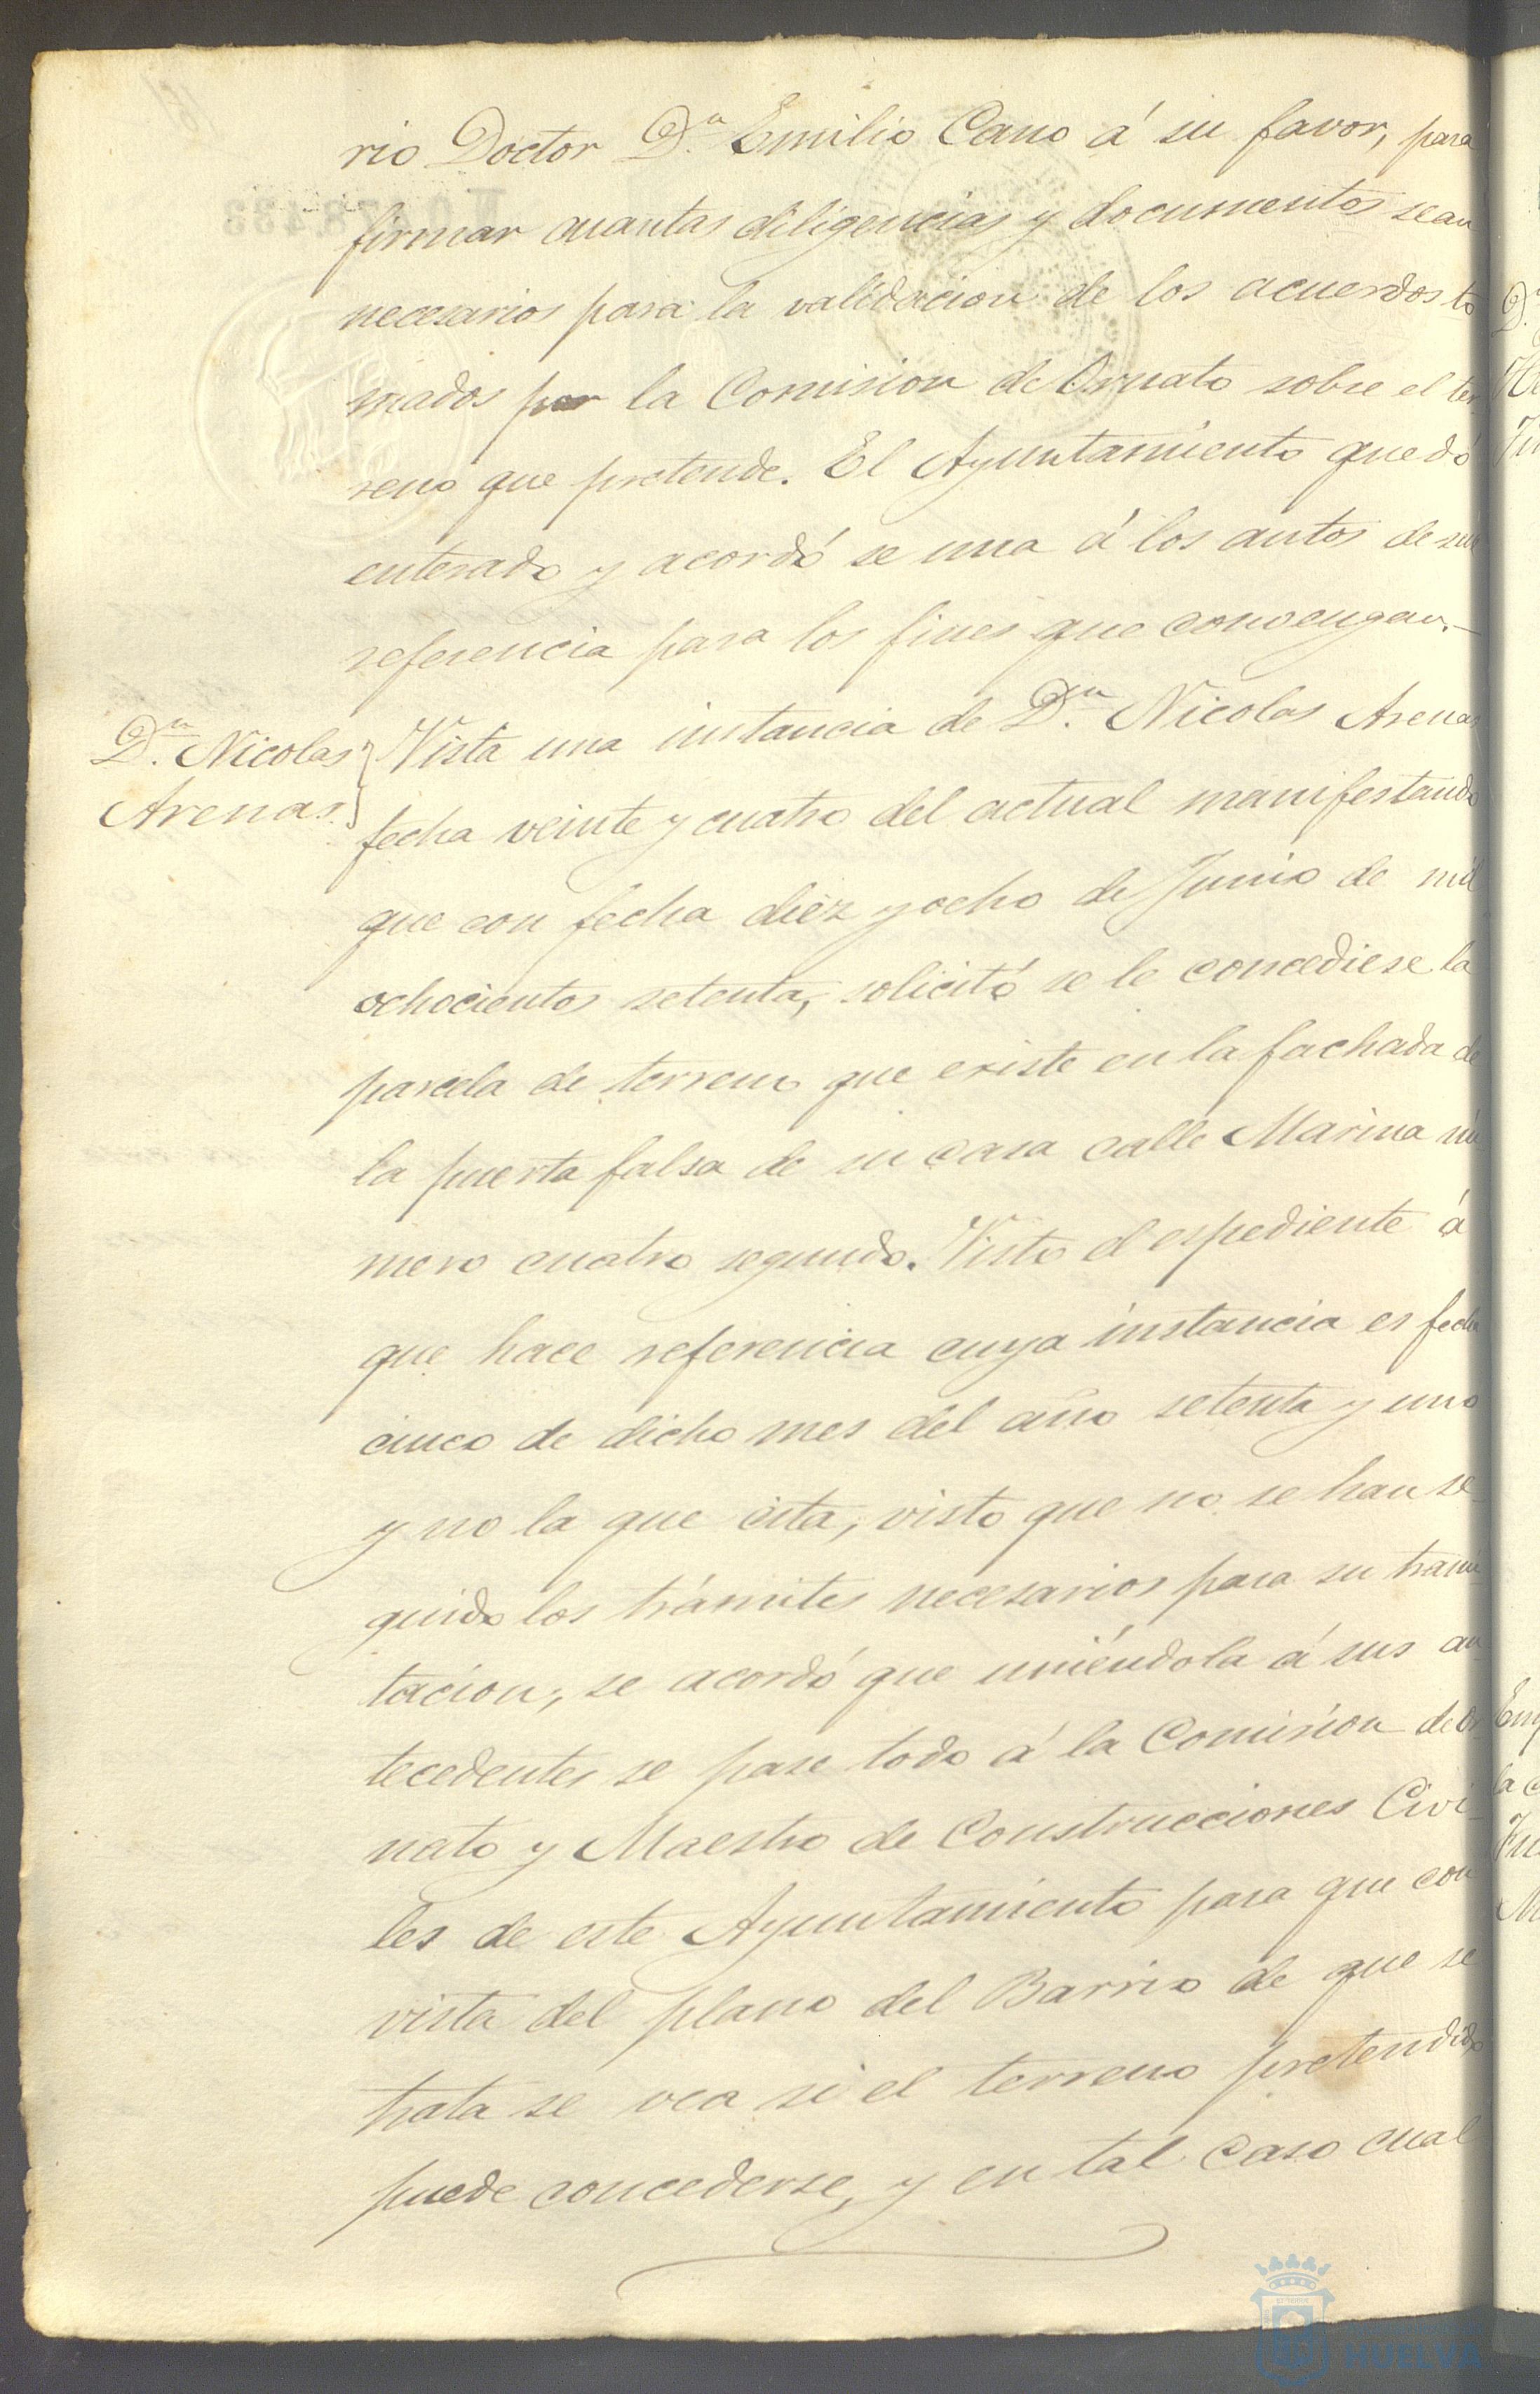 rio Doctor D.n Emilio Cano á su favor, para
firmar cuantas diligencias y documentos sean
necesarios para la validacion de los acuerdos to
mados por la Comision de Ornato sobre el ter
reno que pretende. El Ayuntamiento quedó
enterado y acordó se una á los autos de su
referencia para los fines que convengan.—
D.n Nicolas
Arenas.
Vista una instancia de D.n Nicolas Arenas
fecha veinte y cuatro del actual manifestando
que con fecha diez y ocho de Junio de mil
ochocientos setenta, solicitó se le concediese la
parcela de terreno que existe en la fachada de
la puerta falsa de su casa calle Marina nú
mero cuatro segundo. Visto el espediente á
que hace referencia cuya instancia es fecha
cinco de dicho mes del año setenta y uno
y no la que cita, visto que no se han se
guido los trámites necesarios para su trami
tacion, se acordó que uniéndola á sus an
tecedentes se pase todo á la Comision de Or
nato y Maestro de Construcciones Civi
les de este Ayuntamiento para que con
vista del plano del Barrio de que se
trata se vea si el terreno pretendido
puede concederse, y en tal caso cual
HUELVA